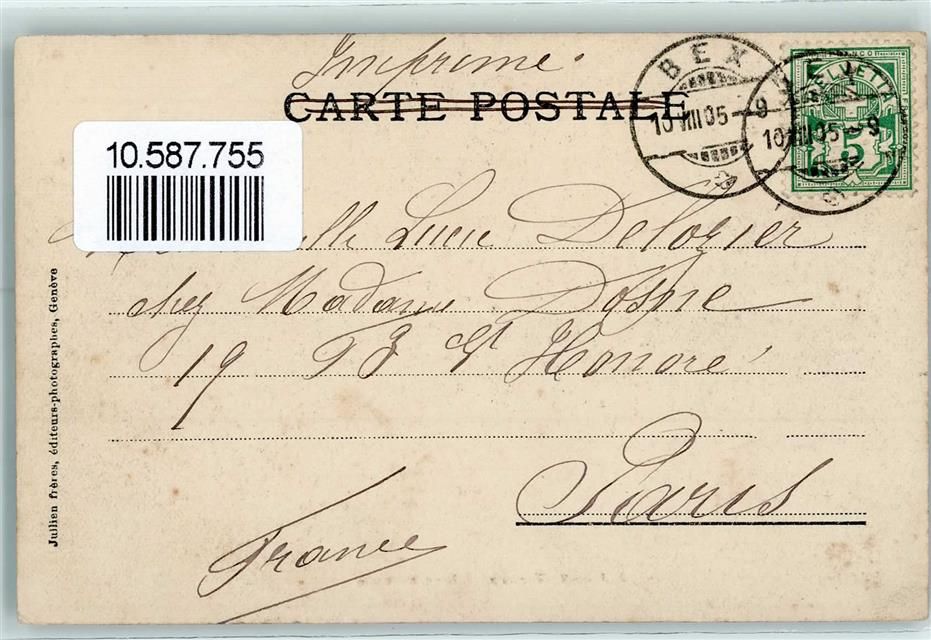 Imprimé.
CARTE POSTALE
BEX
10 VIII 05 - 9
10 VIII 05 - 9
FRANCO
HELVETIA
5
10.587.755
lle Lucie Delozier
chez Madame Dosne
19 Fg St Honoré
Paris
France
Jullien frères, éditeurs-photographes, Genève